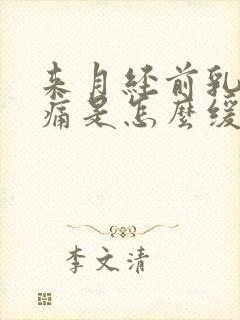 来月经前乳
痛是怎麽缓
李文清